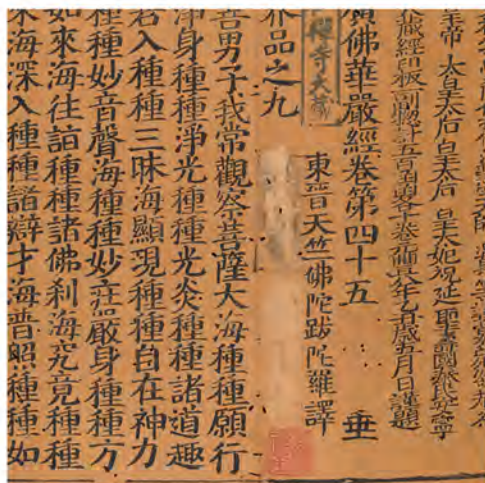 皇帝 太皇太后 皇太后 皇太妃祝延聖壽國泰民安
大藏經印板一副計五百函函各十卷 年乙亥歲五月日謹題
廣佛華嚴經卷第四十五 垂
禪寺大藏
東晉天竺佛陀跋陀羅譯
界品之九
善男子我常觀察菩薩大海種種願行
淨身種種淨光種種光炎種種諸道趣
君入種種三昧海顯現種種自在神力
種種妙音聲海種種妙莊嚴身種種方
如來海往詣種種諸佛刹海究竟種種
來海深入種種諸辯才海普照種種如